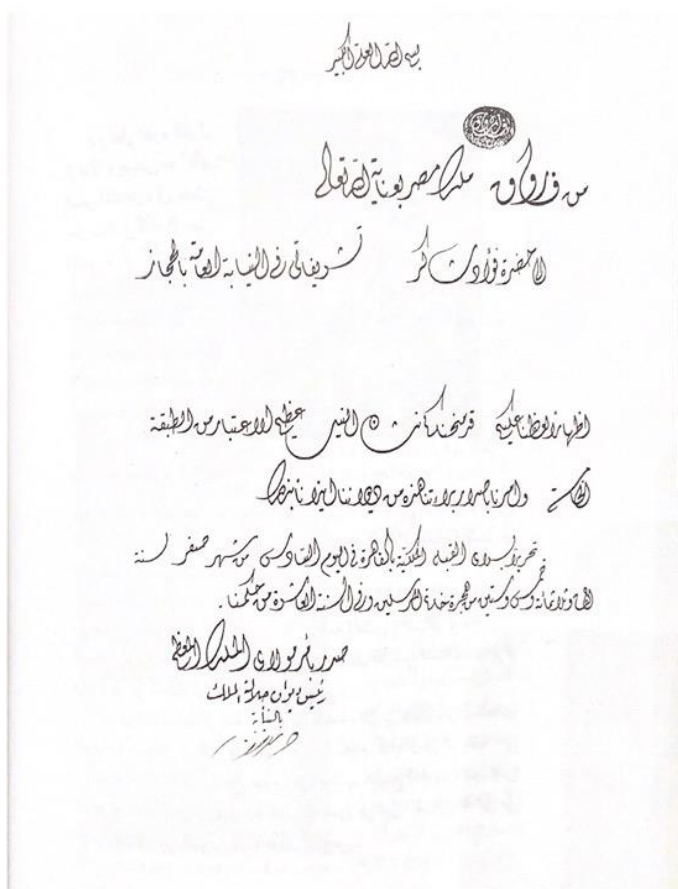 بسم الله العلى الكبير
من فاروق ملك مصر بعناية الله تعالى
الى حضرة فؤاد شاكر تشريفاتى فى النيابة العامة بالحجاز
اظهارا لعطفنا عليكم قد منحناكم نشان النيل عظيم الاعتبار من الطبقة
الخامسة وامرنا باصدار براءتنا هذه من ديواننا ايذانا بذلك
تحريرا بسراى القبه الملكية بالقاهرة فى اليوم السادس من شهر صفر لسنة
الف وثلاثمائة وخمس وستين من هجرة خاتم المرسلين وفى السنة العاشرة من حكمنا .
صدر بأمر مولاى الملك المعظم
رئيس ديوان جلالة الملك
بالنيابة